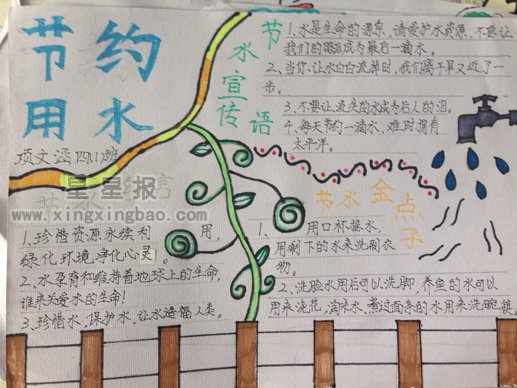 节约
用水
项文涵 四.1班
星星报
www.xingxingbao.com
1.珍惜资源永续利用,
绿化环境,净化心灵。
2.水孕育和维持着地球上的生命,
谁来关爱水的生命!
3.珍惜水,保护水,让水造福人类。
节水宣传语
1.水是生命的源泉,请爱护水资源,不要让
我们的眼泪成为最后一滴水。
2.当你让水白白流掉时,我们离干旱又近了一
步。
3.不要让流失的水成为后人的泪。
4.每天节约一滴水,难时拥有
太平洋。
节水金点子
1、用口杯接水,
用剩下的水来洗刷衣
物。
2、洗脸水用后可以洗脚,养鱼的水可以
用来浇花,淘米水,煮过面条的水用来洗碗筷。